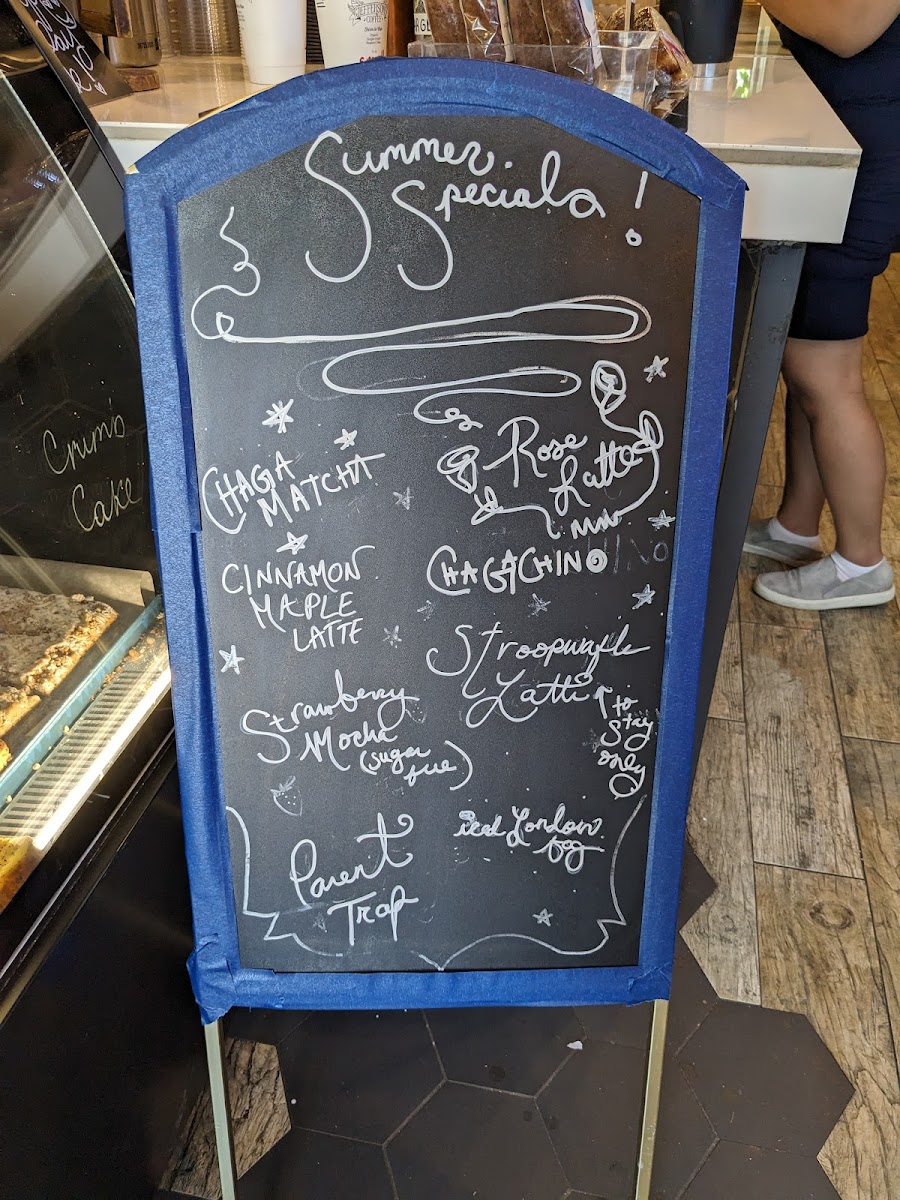 Summer
Specials!
CHAGA
MATCHA
CINNAMON
MAPLE
LATTE
Strawberry
Mocha
(sugar
free)
Parent
Trap
Rose
Latte
CHAGACHINO
Stroopwafle
Latte
to
stay
only
iced London
fog
Crumb
Cake